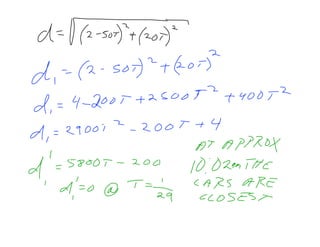 d=√(2-50T)²+(20T)²
d₁=(2-50T)²+(20T)²
d₁=4-200T+2500T²+400T²
d₁=2900T²-200T+4
d₁'=5800T-200
d₁'=0 @ T=1/29
AT APPROX
10:02am THE
CARS ARE
CLOSEST